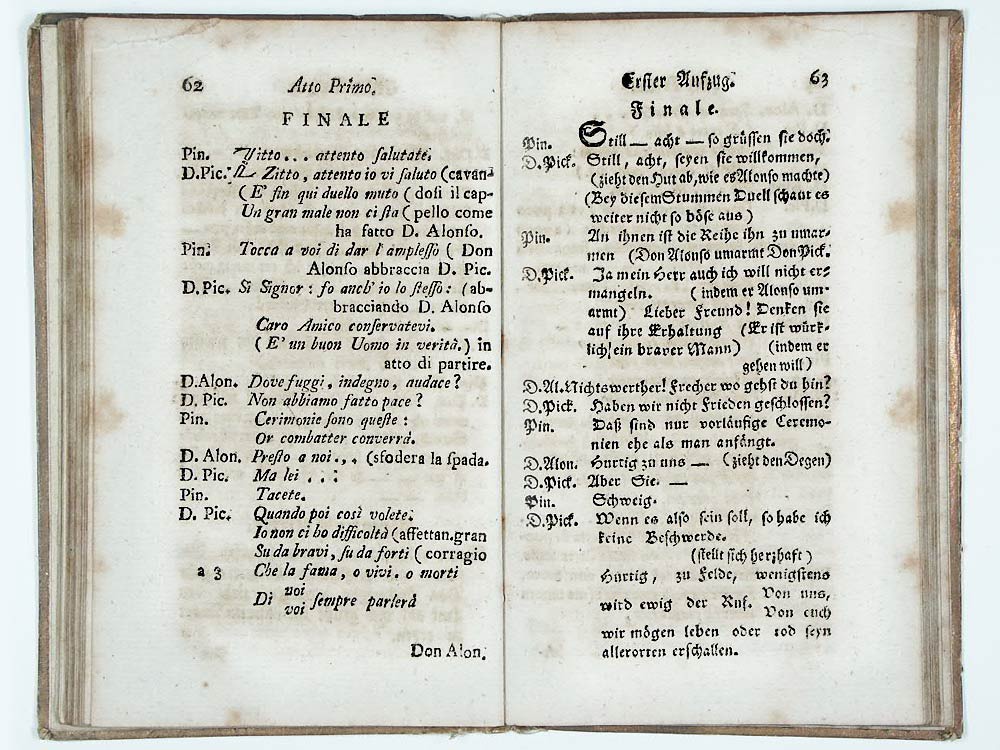 62 Atto Primo.
FINALE
Pin. Zitto... attento salutate.
D.Pic. Zitto, attento io vi saluto (cavan-
(E' fin qui duello muto (dosi il cap-
Un gran male non ci sta (pello come
ha fatto D. Alonso.
Pin. Tocca a voi di dar l'amplesso ( Don
Alonso abbraccia D. Pic.
D. Pic. Si Signor: fo anch' io lo stesso: (ab-
bracciando D. Alonso
Caro Amico conservatevi.
(E' un buon Uomo in verità.) in
atto di partire.
D. Alon. Dove fuggi, indegno, audace?
D. Pic. Non abbiamo fatto pace?
Pin. Cerimonie sono queste:
Or combatter converrà.
D. Alon. Presto a noi... (sfodera la spada.
D. Pic. Ma lei ...
Pin. Tacete.
D. Pic. Quando poi così volete.
Io non ci ho difficoltà (affettan.gran
Su da bravi, su da forti ( corragio
a 3 Che la fama, o vivi. o morti
Di noi
voi sempre parlerà
Don Alon.
Erster Aufzug. 63
Finale.
Pin. Still — acht — so grüssen sie doch.
D.Pick. Still, acht, seyen sie willkommen,
(zieht den Hut ab, wie es Alonso machte)
(Bey diesem Stummen Duell schaut es
weiter nicht so böse aus)
Pin. An ihnen ist die Reihe ihn zu umar-
men (Don Alonso umarmt Don Pick.
D.Pick. Ja mein Herr auch ich will nicht er-
mangeln. (indem er Alonso um-
armt) Lieber Freund! Denken sie
auf ihre Erhaltung (Er ist würk-
lich! ein braver Mann) (indem er
gehen will)
D.Al. Nichtswerther! Frecher wo gehst du hin?
D.Pick. Haben wir nicht Frieden geschlossen?
Pin. Daß sind nur vorläufige Ceremo-
nien ehe als man anfängt.
D.Alon. Hurtig zu uns — (zieht den Degen)
D.Pick. Aber Sie. —
Pin. Schweig.
D.Pick. Wenn es also sein soll, so habe ich
keine Beschwerde.
(stellt sich herzhaft)
Hurtig, zu Felde, wenigstens
wird ewig der Ruf. Von uns,
Von euch
wir mögen leben oder tod seyn
allerorten erschallen.